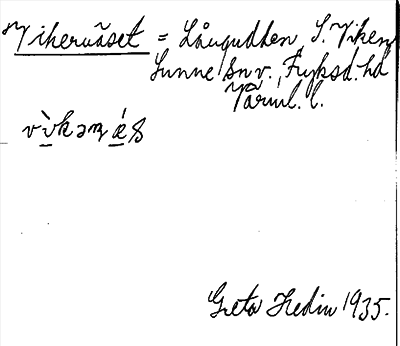 Vikernäset = Långudden, S. Viken,
Sunne sn v., Fryksd. hd
Värml. l.
vi̱kəɳ ǽ̱s
Greta Hedin 1935.